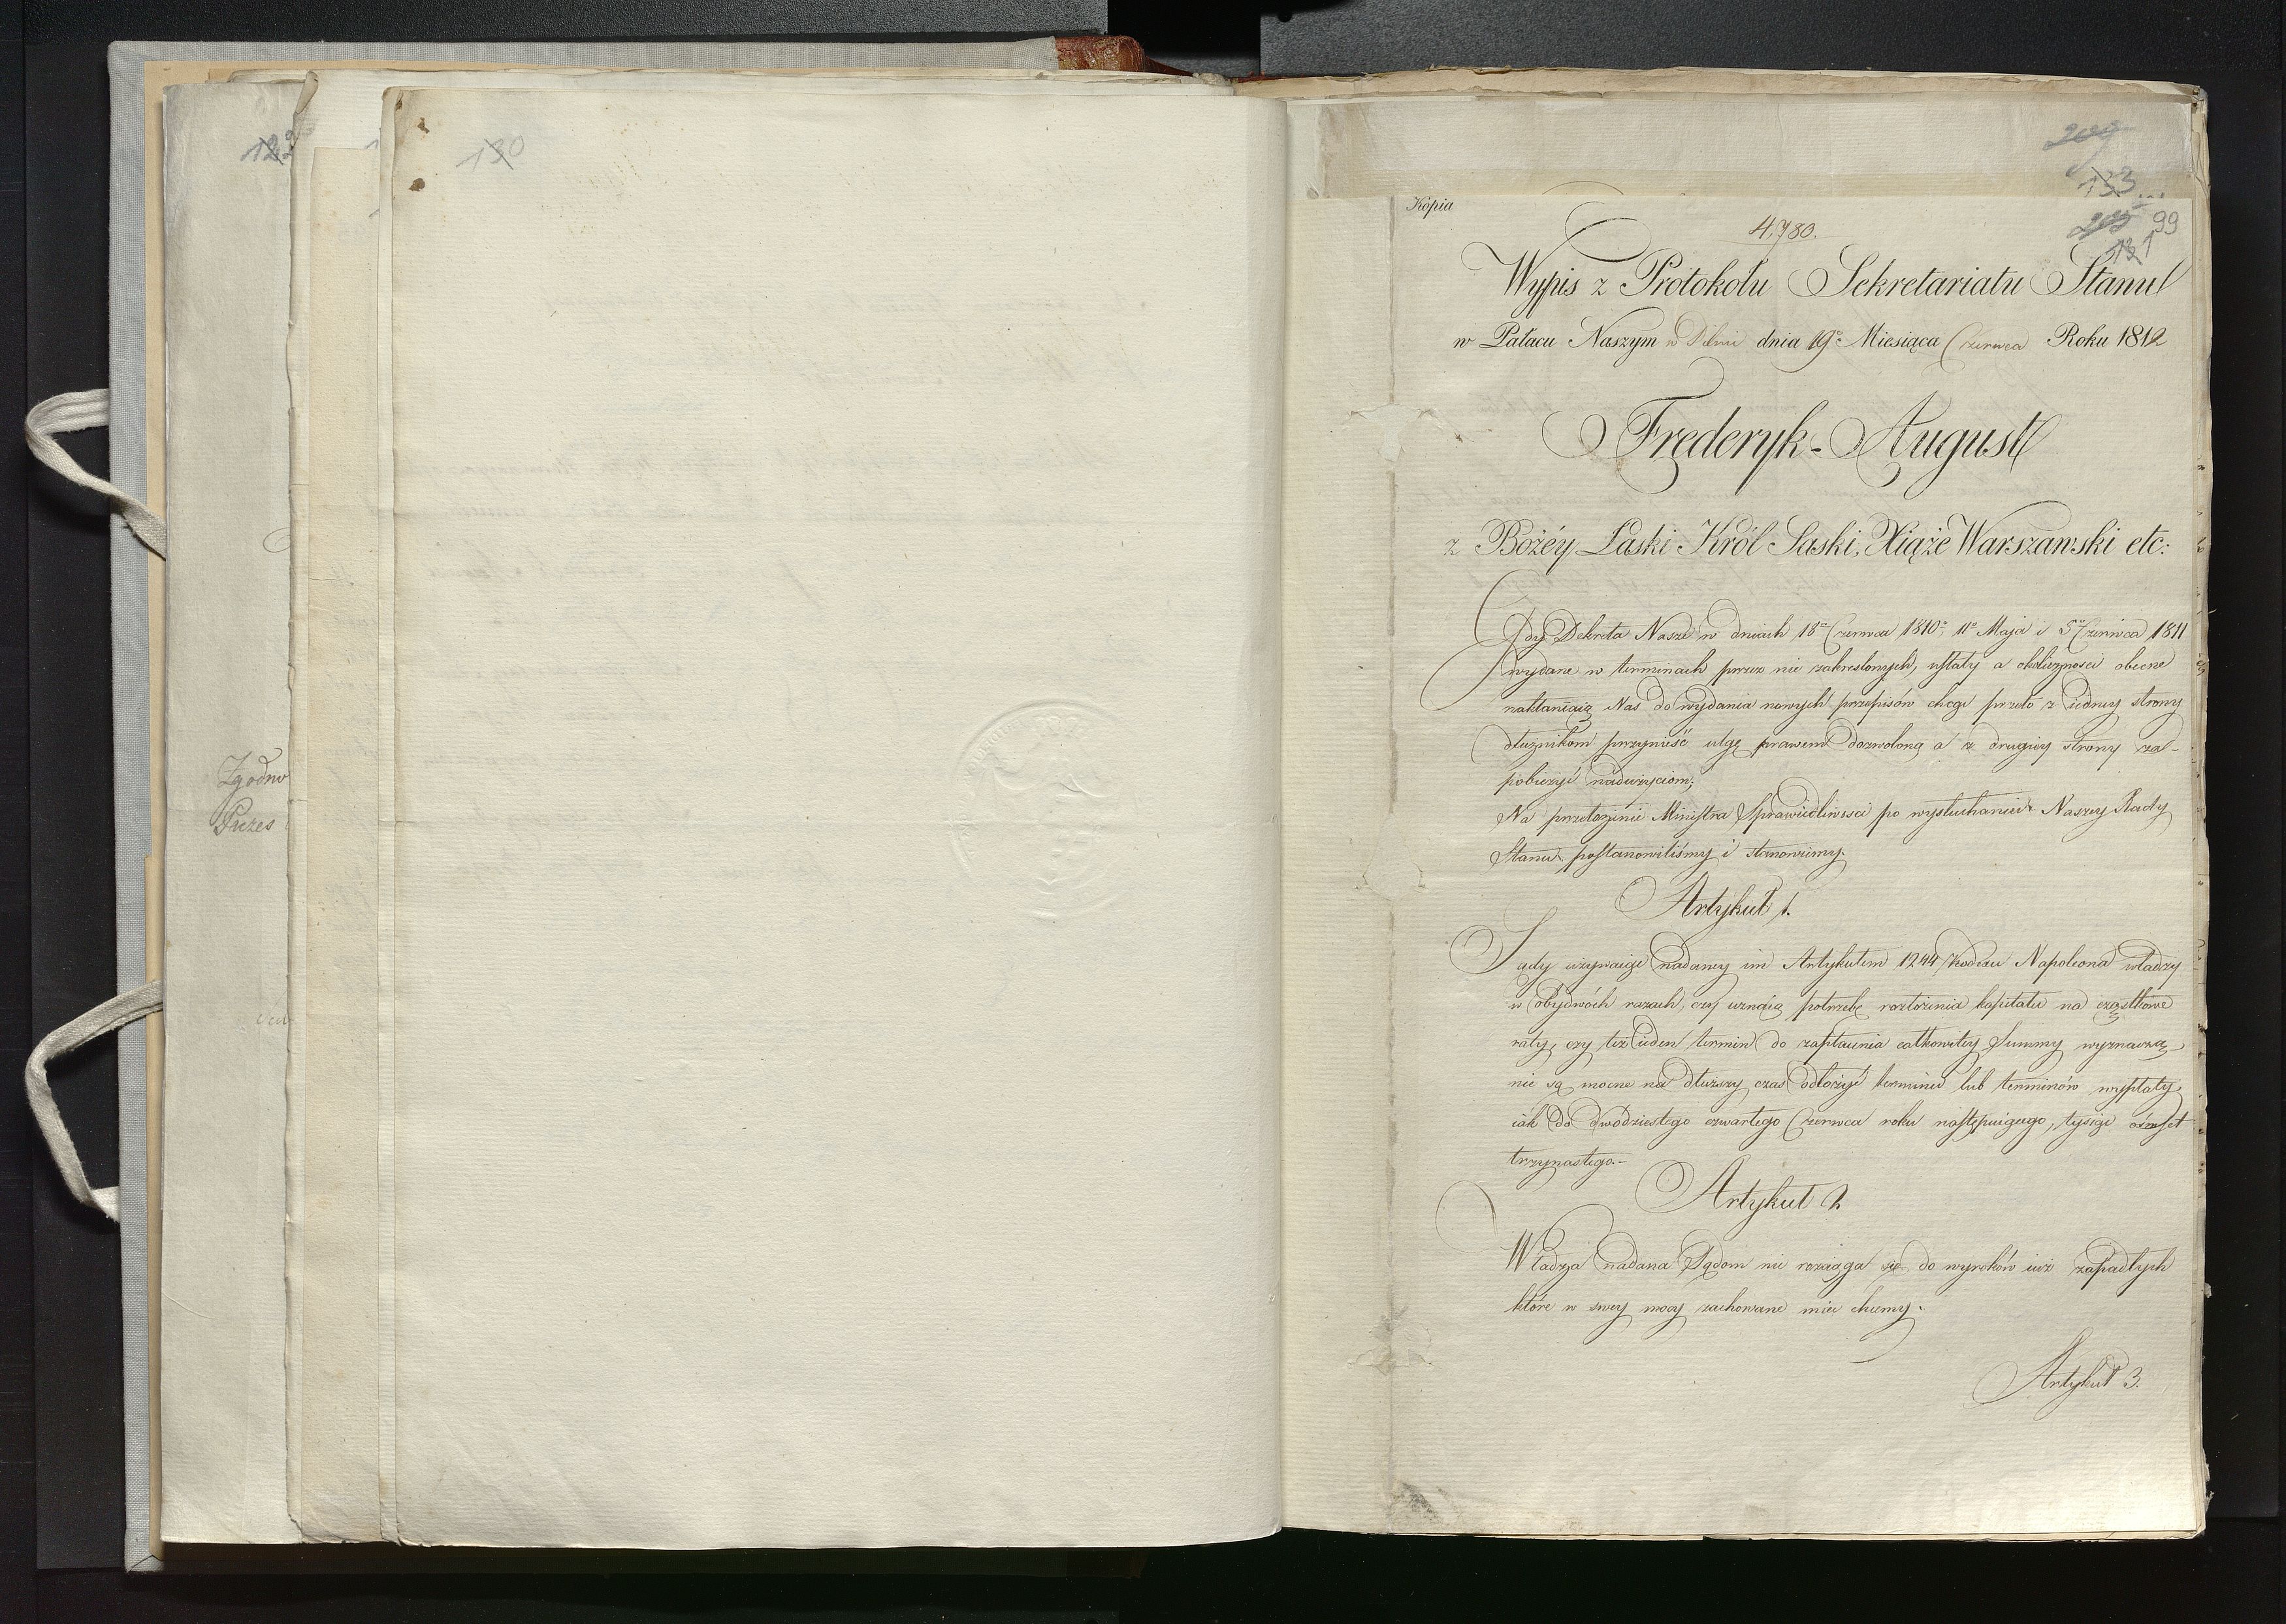 130
Zgodno
Prezes
209
133
Kopia
205 99
131
4,780.
Wypis z Protokołu Sekretariatu Stanu
w Pałacu Naszym w dnia 19º Miesiąca Czerwca Roku 1812
Fręderyk-August
z Bożéy Łaski Król Saski, Xiąże Warszawski etc:
Gdy Dekreta Nasze w dniach 18º Czerwca 1810º, 11º Maja i 5º Czerwca 1811
wydane w terminach przez nie zakreslonych, ustały a okoliczności obecne
nakłaniaią Nas do wydania nowych przepisów chcąc przeto z iedney strony
dłużnikom przynieść ulgę prawem dozwoloną a z drugiey strony za-
pobieżyć nadużyciom;
Na przełożenie Ministra Sprawiedliwości po wysłuchaniu Naszey Rady
Stanu postanowiliśmy i stanowimy.
Artykuł 1.
Sądy używaiąc nadaney im Artykułem 1244 Kodexu Napoleona władzy
w obydwóch razach, czy uznaią potrzebę rozłożenia kapitału na cząstkowe
raty, czy też ieden termin do zapłacenia całkowitey Summy wyznaczą,
nie są mocne na dłuższy czas odłożyć terminu lub terminów wypłaty,
iak do dwódziestego czwartego Czerwca roku następuiącego, tysiąc ośmset
trzynastego.-
Artykuł 2
Władza nadana Sądom nie rozciąga się do wyroków iuż zapadłych
które w swey mocy zachowane mieć chcemy.
Artykuł 3.